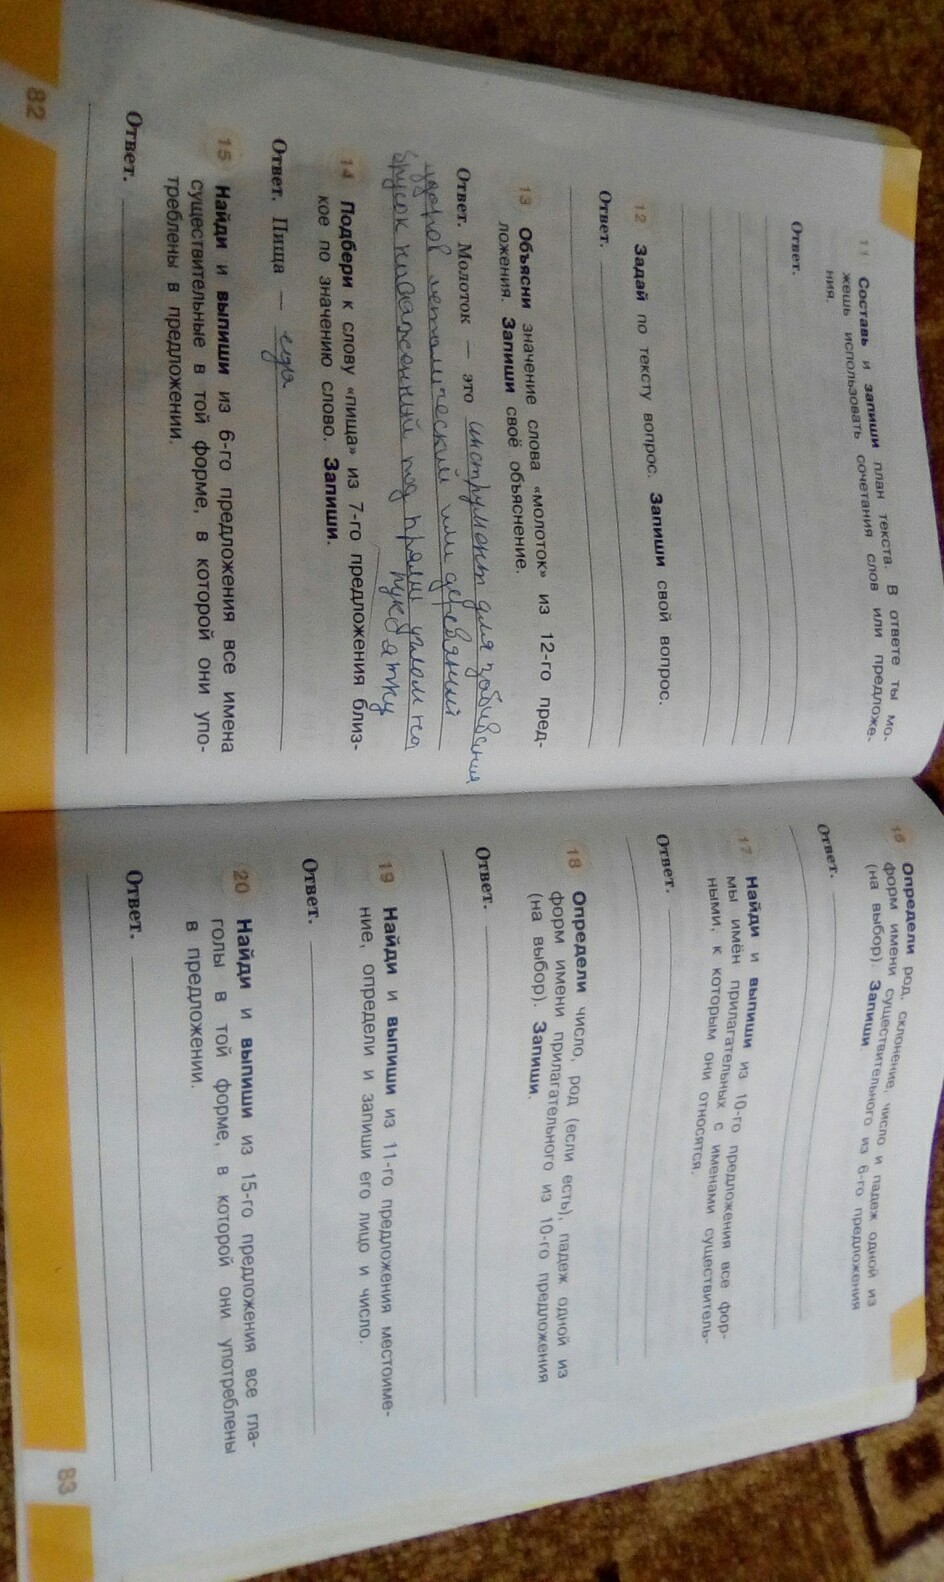 11 Составь и запиши план текста. В ответе ты мо-
жешь использовать сочетания слов или предложе-
ния.
Ответ.
12 Задай по тексту вопрос. Запиши свой вопрос.
Ответ.
13 Объясни значение слова «молоток» из 12-го пред-
ложения. Запиши своё объяснение.
Ответ. Молоток — это инструмент для забивания
ударов металический или деревянный
брусок насаженный под прямы углом на
рукоятку
14 Подбери к слову «пища» из 7-го предложения близ-
кое по значению слово. Запиши.
Ответ. Пища — еда
15 Найди и выпиши из 6-го предложения все имена
существительные в той форме, в которой они упо-
треблены в предложении.
Ответ.
82
16 Определи род, склонение, число и падеж одной из
форм имени существительного из 6-го предложения
(на выбор). Запиши.
Ответ.
17 Найди и выпиши из 10-го предложения все фор-
мы имён прилагательных с именами существитель-
ными, к которым они относятся.
Ответ.
18 Определи число, род (если есть), падеж одной из
форм имени прилагательного из 10-го предложения
(на выбор). Запиши.
Ответ.
19 Найди и выпиши из 11-го предложения местоиме-
ние, определи и запиши его лицо и число.
Ответ.
20 Найди и выпиши из 15-го предложения все гла-
голы в той форме, в которой они употреблены
в предложении.
Ответ.
83